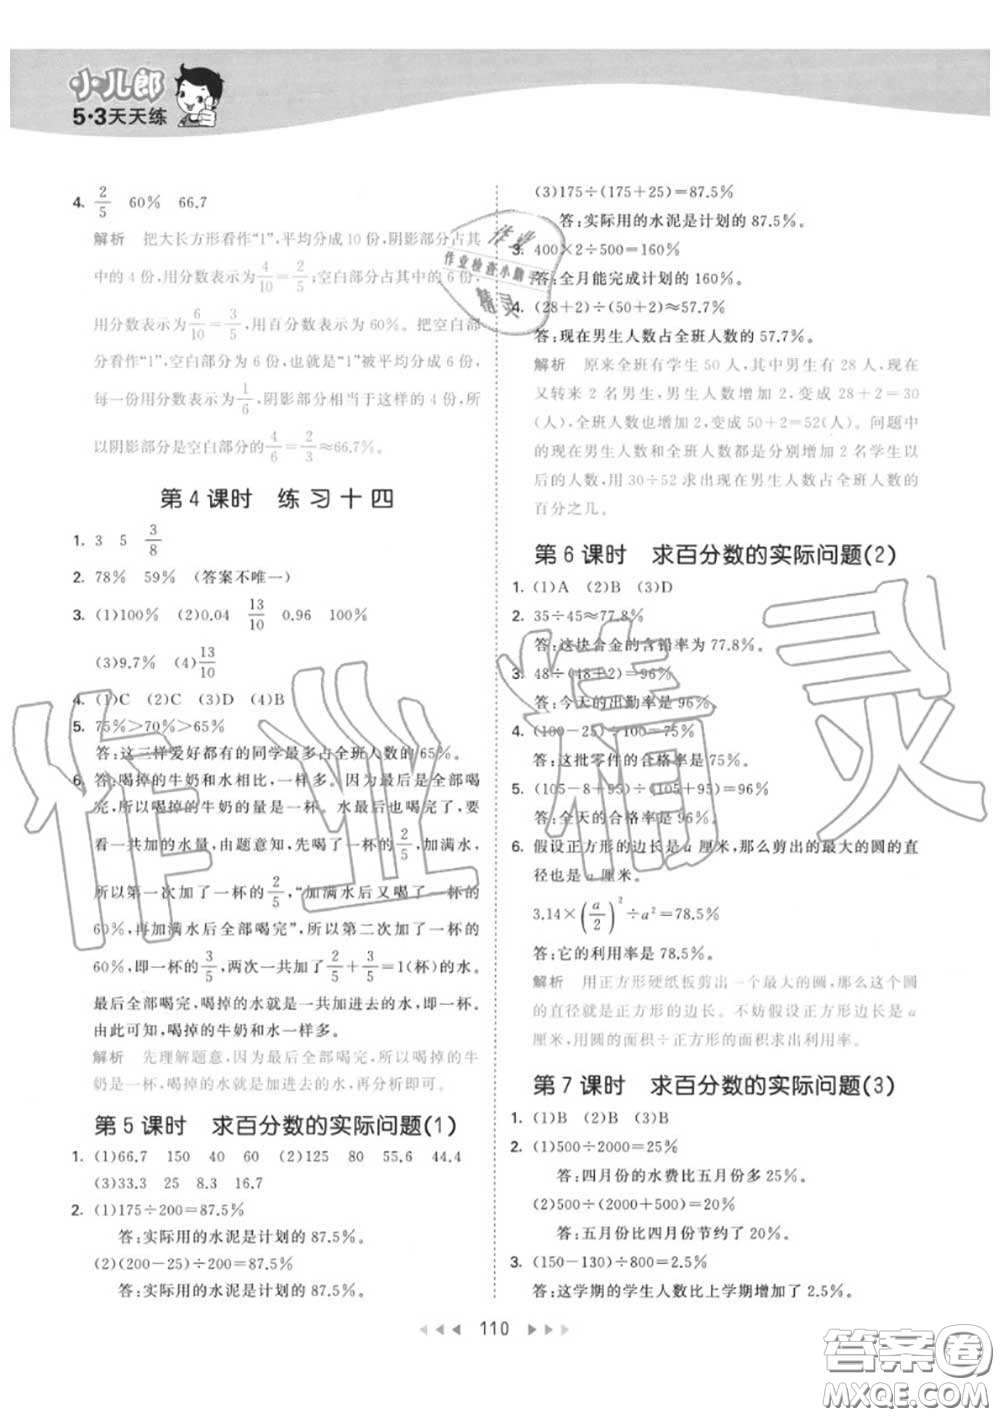 小儿郎
5·3天天练
4. 2/5 60% 66.7
解析 把大长方形看作“1”,平均分成10份,阴影部分占其
中的4份,用分数表示为4/10=2/5;空白部分占其中的6份,
用分数表示为6/10=3/5,用百分数表示为60%。把空白部
分看作“1”,空白部分为6份,也就是“1”被平均分成6份,
每一份用分数表示为1/6,阴影部分相当于这样的4份,所
以阴影部分是空白部分的4/6=2/3≈66.7%。
第4课时 练习十四
1. 3 5 3/8
2. 78% 59% (答案不唯一)
3. (1)100% (2)0.04 13/10 0.96 100%
(3)9.7% (4)13/10
4. (1)C (2)C (3)D (4)C
5. 75%>70%>65%
答:这三样爱好都有的同学最多占全班人数的65%。
6. 答:喝掉的牛奶和水相比,一样多。因为最后是全部喝
完,所以喝掉的牛奶的量是一杯。水最后也喝完了,要
看一共加的水量,由题意知,喝了一杯的2/5后加满水,
所以第一次加了一杯的2/5,“加满水后又喝了一杯的
60%,再加满水后全部喝完”,所以第二次加了一杯的
60%,即一杯的3/5,两次一共加了2/5+3/5=1(杯)的水。
最后全部喝完,喝掉的水就是一共加进去的水,即一杯。
由此可知,喝掉的牛奶和水一样多。
解析 先理解题意,因为最后全部喝完,所以喝掉的牛
奶是一杯,喝掉的水就是加进去的水,再分析即可。
第5课时 求百分数的实际问题(1)
1. (1)66.7 150 40 60 (2)125 80 55.6 44.4
(3)33.3 25 8.3 16.7
2. (1)175÷200=87.5%
答:实际用的水泥是计划的87.5%。
(2)(200-25)÷200=87.5%
答:实际用的水泥是计划的87.5%。
(3)175÷(175+25)=87.5%
答:实际用的水泥是计划的87.5%。
3. 400×2÷500=160%
答:全月能完成计划的160%。
4. (28+2)÷(50+2)≈57.7%
答:现在男生人数占全班人数的57.7%。
解析 原来全班有学生50人,其中男生有28人,现在
又转来2名男生,男生人数增加2,变成28+2=30
(人),全班人数也增加2,变成50+2=52(人)。问题中
的现在男生人数和全班人数都是分别增加2名学生以
后的人数,用30÷52求出现在男生人数占全班人数的
百分之几。
第6课时 求百分数的实际问题(2)
1. (1)A (2)B (3)D
2. 35÷45≈77.8%
答:这块合金的含铅率为77.8%。
3. 48÷(48+2)=96%
答:今天的出勤率是96%。
4. (100-25)÷100=75%
答:这批零件的合格率是75%。
5. (105-8+95)÷(105+95)=96%
答:全天的合格率是96%。
6. 假设正方形的边长是a厘米,那么剪出的最大的圆的直
径也是a厘米。
3.14×(a/2)²÷a²=78.5%
答:它的利用率是78.5%。
解析 用正方形硬纸板剪出一个最大的圆,那么这个圆
的直径就是正方形的边长。不妨假设正方形边长是a
厘米,用圆的面积÷正方形的面积求出利用率。
第7课时 求百分数的实际问题(3)
1. (1)B (2)B (3)B
2. (1)500÷2000=25%
答:四月份的水费比五月份多25%。
(2)500÷(2000+500)=20%
答:五月份比四月份节约了20%。
3. (150-130)÷800=2.5%
答:这学期的学生人数比上学期增加了2.5%。
110
作业
作业检查小助手
精灵
作业精灵
答案圈
MXQE.COM